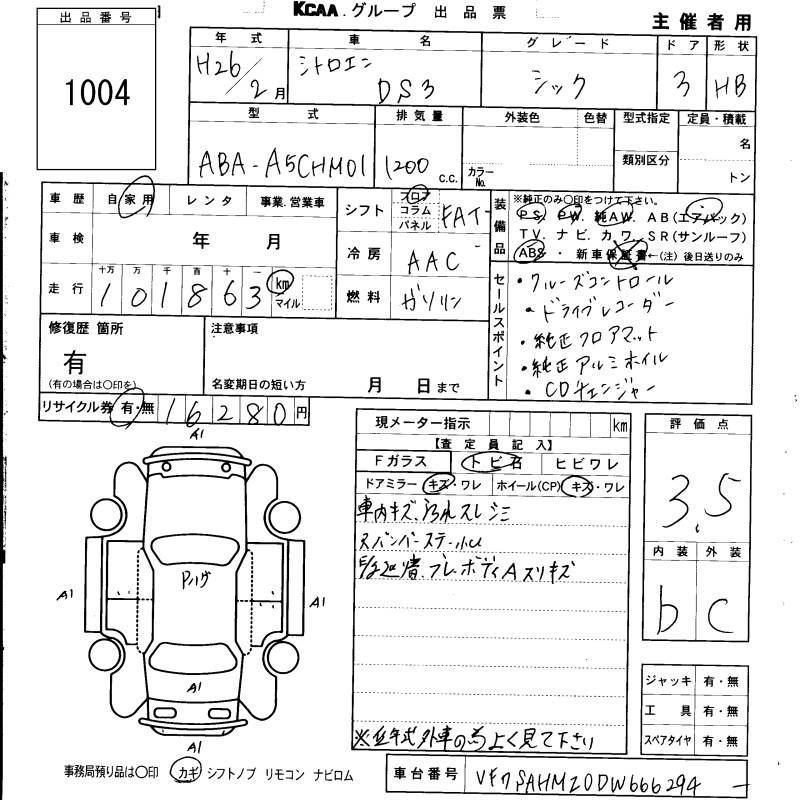 KCAA.グループ 出品票
主催者用
出品番号
1004
年式 車名 グレード ドア 形状
H26/2月 シトロエン DS3 シック 3 HB
型式 排気量 外装色 色替 型式指定 定員・積載
ABA-A5CHM01 1200 c.c. カラーNo. 類別区分 名 トン
車歴 自家用 レンタ 事業.営業車
車検 年 月
走行 十万 万 千 百 十 一
101863 km マイル
シフト フロア コラム パネル FAT
冷房 AAC
燃料 ガソリン
装備品 ※純正のみ〇印をつけて下さい。
PS. PW. 純AW. AB(エアバック)
TV. ナビ. カワ. SR(サンルーフ)
ABS ・ 新車保証書←(注)後日送りのみ
セールスポイント
・クルーズコントロール
・ドライブレコーダー
・純正フロアマット
・純正アルミホイル
・CDチェンジャー
修復歴 箇所
有
(有の場合は〇印を)
注意事項
名変期日の短い方 月 日まで
リサイクル券 有・無 16280円
現メーター指示 km
【査定員記入】
Fガラス トビ石 ヒビワレ
ドアミラー キズ・ワレ ホイール(CP) キズ・ワレ
車内キズ、汚れスレシミ
ボディAスリキズ
※低年式外車の為よく見て下さい
評価点
3.5
内装 外装
b C
ジャッキ 有・無
工具 有・無
スペアタイヤ 有・無
A1
Pハゲ
A1
A1
A1
A1
事務局預り品は〇印 カギ シフトノブ リモコン ナビロム
車台番号 VF7SAHMZ0DW666294